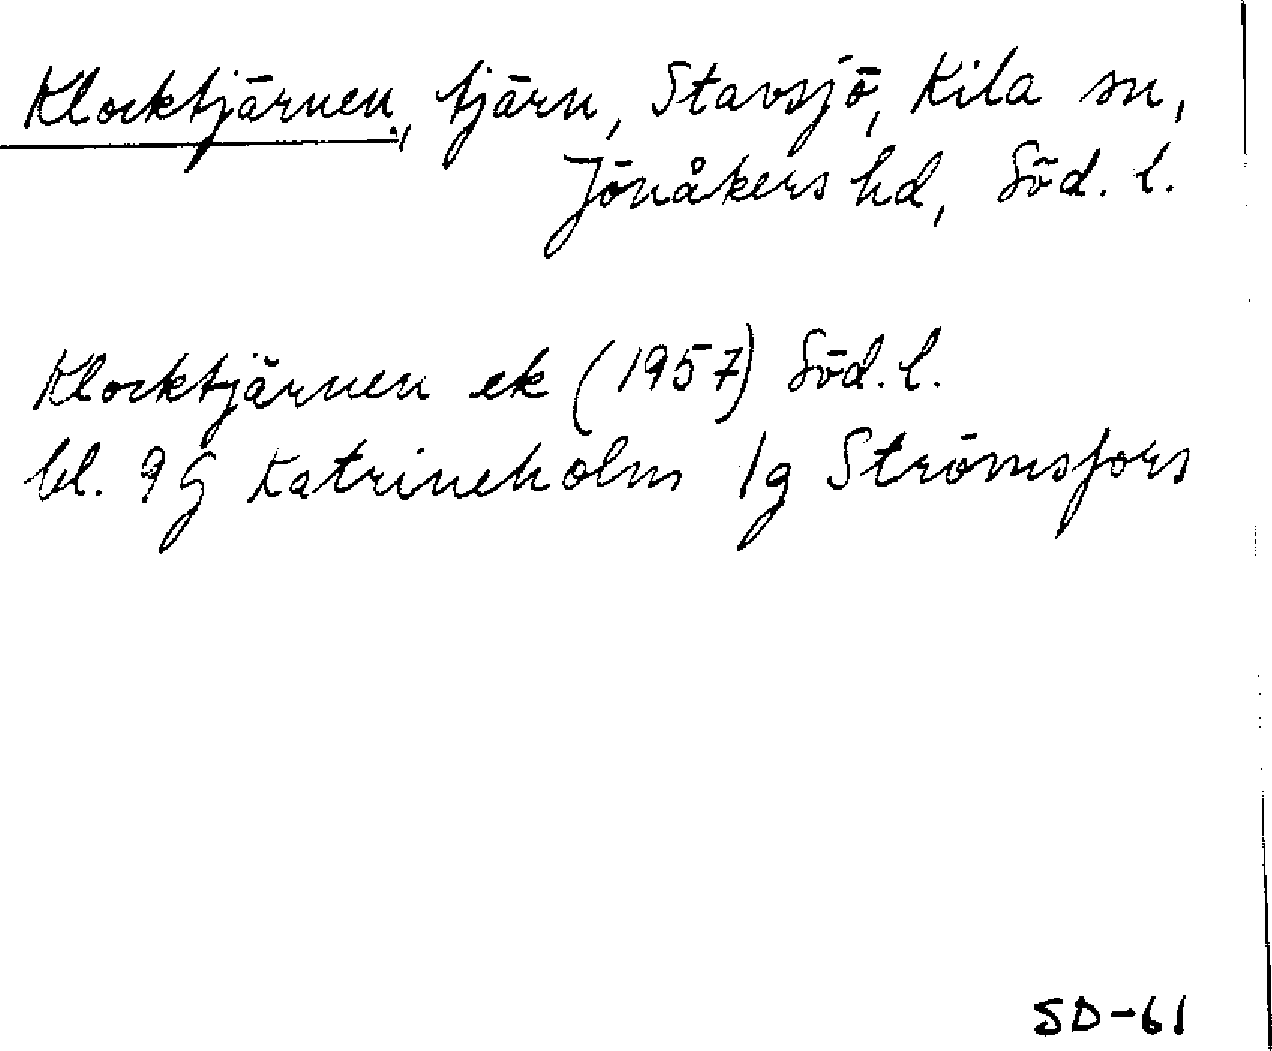 Klocktjärnen, tjärn, Stavsjö, Kila sn,
Jönåkers hd, Söd. l.
Klocktjärnen ek (1957) Söd. l.
bl. 9 G Katrineholm 1g Strömsfors
SD-61